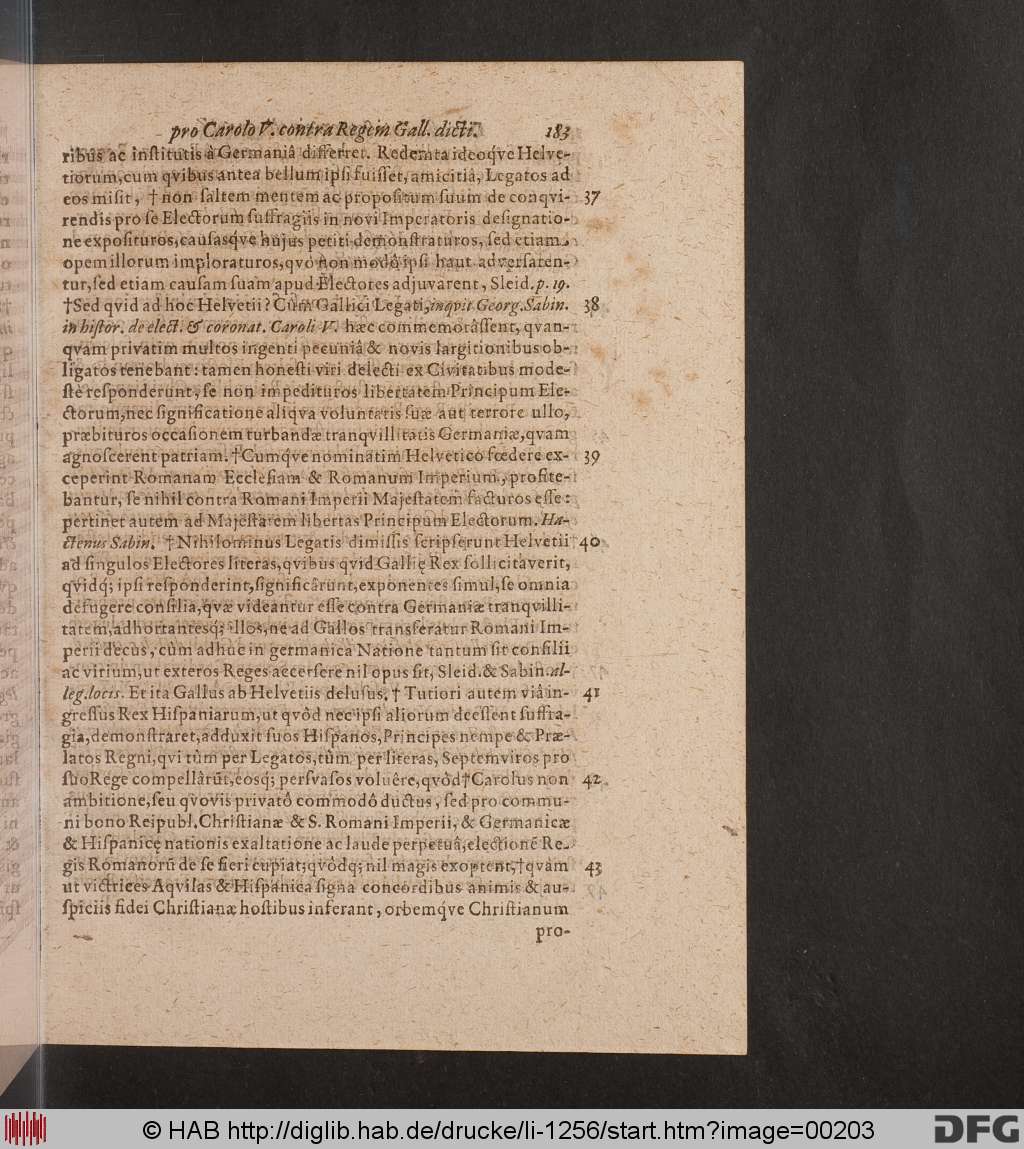 pro Carolo V. contra Regem Gall. dicti. 183
ribus ac institutis à Germaniâ differret. Redemta ideoq́ve Helve-
tiorum, cum qvibus antea bellum ipsi fuisset, amicitiâ, Legatos ad
eos misit, † non saltem mentem ac propositum suum de conqvi- 37
rendis pro se Electorum suffragiis in novi Imperatoris designatio-
ne exposituros, causasq́ve hujus petiti demonstraturos, sed etiam
opem illorum imploraturos, qvô non modô ipsi haut adversaren-
tur, sed etiam causam suam apud Electores adjuvarent, Sleid. p. 19.
† Sed qvid ad hoc Helvetii? Cùm Gallici Legati, inqvit Georg. Sabin. 38
in histor. de elect. & coronat. Caroli V. hæc commemorâssent, qvan-
qvàm privatim multos ingenti pecuniâ & novis largitionibus ob-
ligatos tenebant: tamen honesti viri delecti ex Civitatibus mode-
stè responderunt, se non impedituros libertatem Principum Ele-
ctorum, nec significatione aliqva voluntatis suæ aut terrore ullo,
præbituros occasionem turbandæ tranqvillitatis Germaniæ, qvam
agnoscerent patriam. † Cumq́ve nominatim Helvetico fœdere ex- 39
ceperint Romanam Ecclesiam & Romanum Imperium, profite-
bantur, se nihil contra Romani Imperii Majestatem facturos esse:
pertinet autem ad Majestatem libertas Principum Electorum. Ha-
ctenus Sabin. † Nihilominus Legatis dimissis scripserunt Helvetii 40
ad singulos Electores literas, qvibus qvid Gallię Rex sollicitaverit,
qvidq; ipsi responderint, significârunt, exponentes simul, se omnia
defugere consilia, qvæ videantur esse contra Germaniæ tranqvilli-
tatem, adhortantesq; illos, ne ad Gallos transferatur Romani Im-
perii decus, cùm adhuc in germanica Natione tantum sit consilii
ac virium, ut exteros Reges accersere nil opus sit, Sleid. & Sabin. al-
leg. locis. Et ita Gallus ab Helvetiis delusus. † Tutiori autem viâ in- 41
gressus Rex Hispaniarum, ut qvôd nec ipsi aliorum deessent suffra-
gia, demonstraret, adduxit suos Hispanos, Principes nempe & Præ-
latos Regni, qvi tùm per Legatos, tùm per literas, Septemviros pro
suo Rege compellârūt, eosq; persvasos voluêre, qvòd † Carolus non 42
ambitione, seu qvovis privatô commodô ductus, sed pro commu-
ni bono Reipubl. Christianæ & S. Romani Imperii, & Germanicæ
& Hispanicę nationis exaltatione ac laude perpetuâ, electionē Re-
gis Romanorū de se fieri cupiat; qvôdq; nil magis exoptent, † qvàm 43
ut victrices Aqvilas & Hispanica signa concordibus animis & au-
spiciis fidei Christianæ hostibus inferant, orbemq́ve Christianum
pro-
© HAB http://diglib.hab.de/drucke/li-1256/start.htm?image=00203
DFG